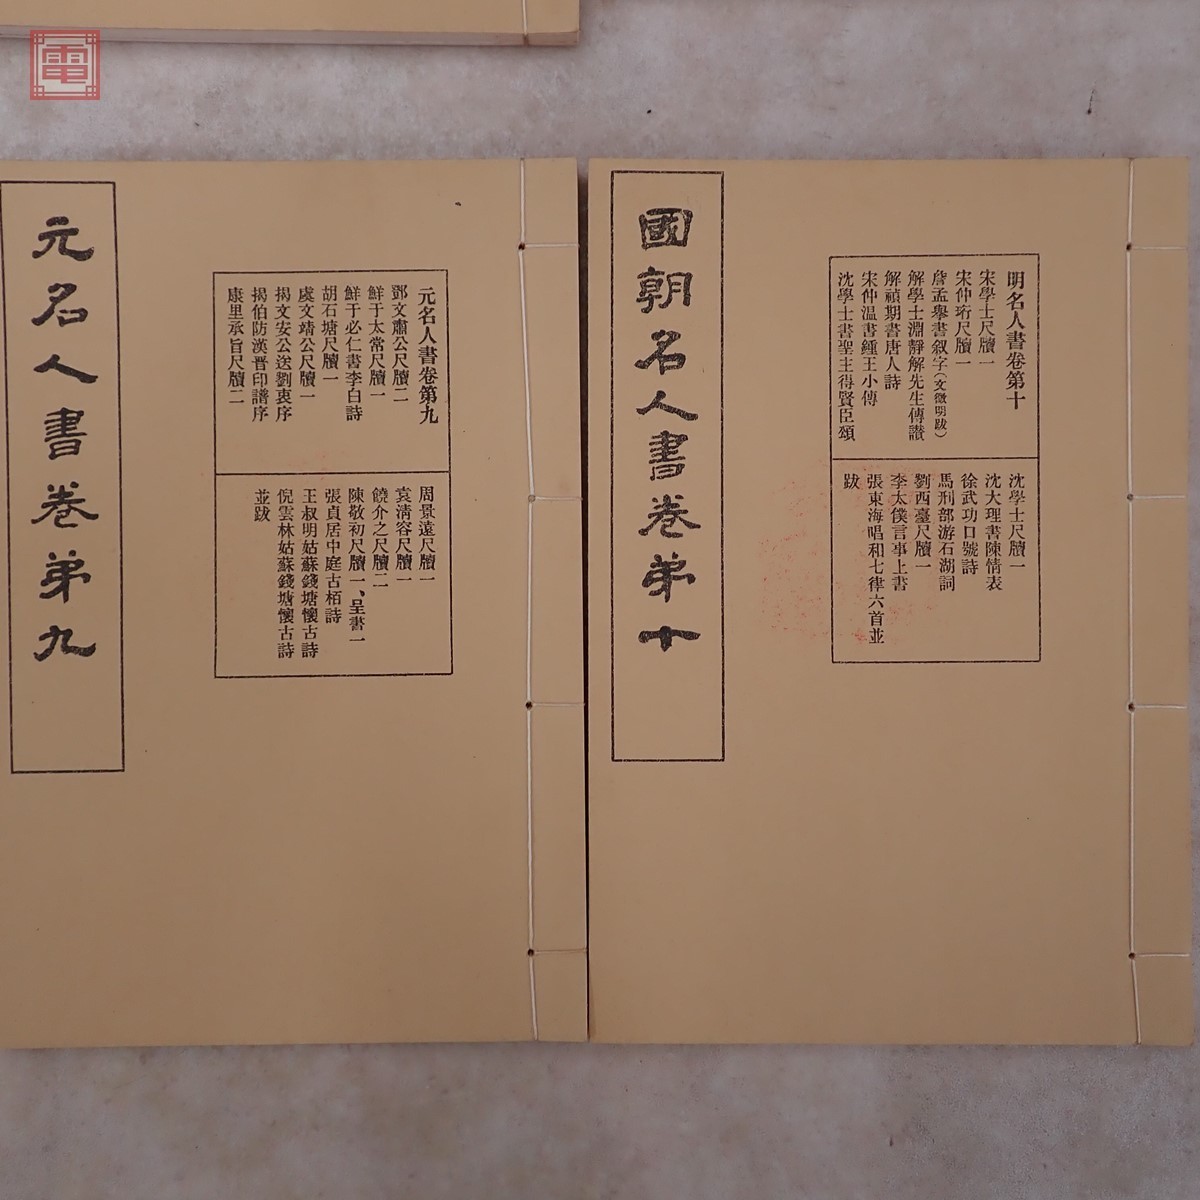 電
國朝名人書卷弟十
明名人書卷第十
宋學士尺牘一
宋仲珩尺牘一
詹孟舉書叙字(文徵明跋)
解學士淵靜解先生傳讃
解禎期書唐人詩
宋仲溫書鍾王小傳
沈學士書聖主得賢臣頌
沈學士尺牘一
沈大理書陳情表
徐武功口號詩
馬刑部游石湖詞
劉西臺尺牘一
李太僕言事上書
張東海唱和七律六首並
跋
元名人書卷弟九
元名人書卷第九
鄧文肅公尺牘二
鮮于太常尺牘一
鮮于必仁書李白詩
胡石塘尺牘一
虞文靖公尺牘一
揭文安公送劉衷序
揭伯防漢晋印譜序
康里承旨尺牘二
周景遠尺牘一
袁淸容尺牘一
饒介之尺牘二
陳敬初尺牘一、呈書一
張貞居中庭古栢詩
王叔明姑蘇錢塘懷古詩
倪雲林姑蘇錢塘懷古詩
並跋